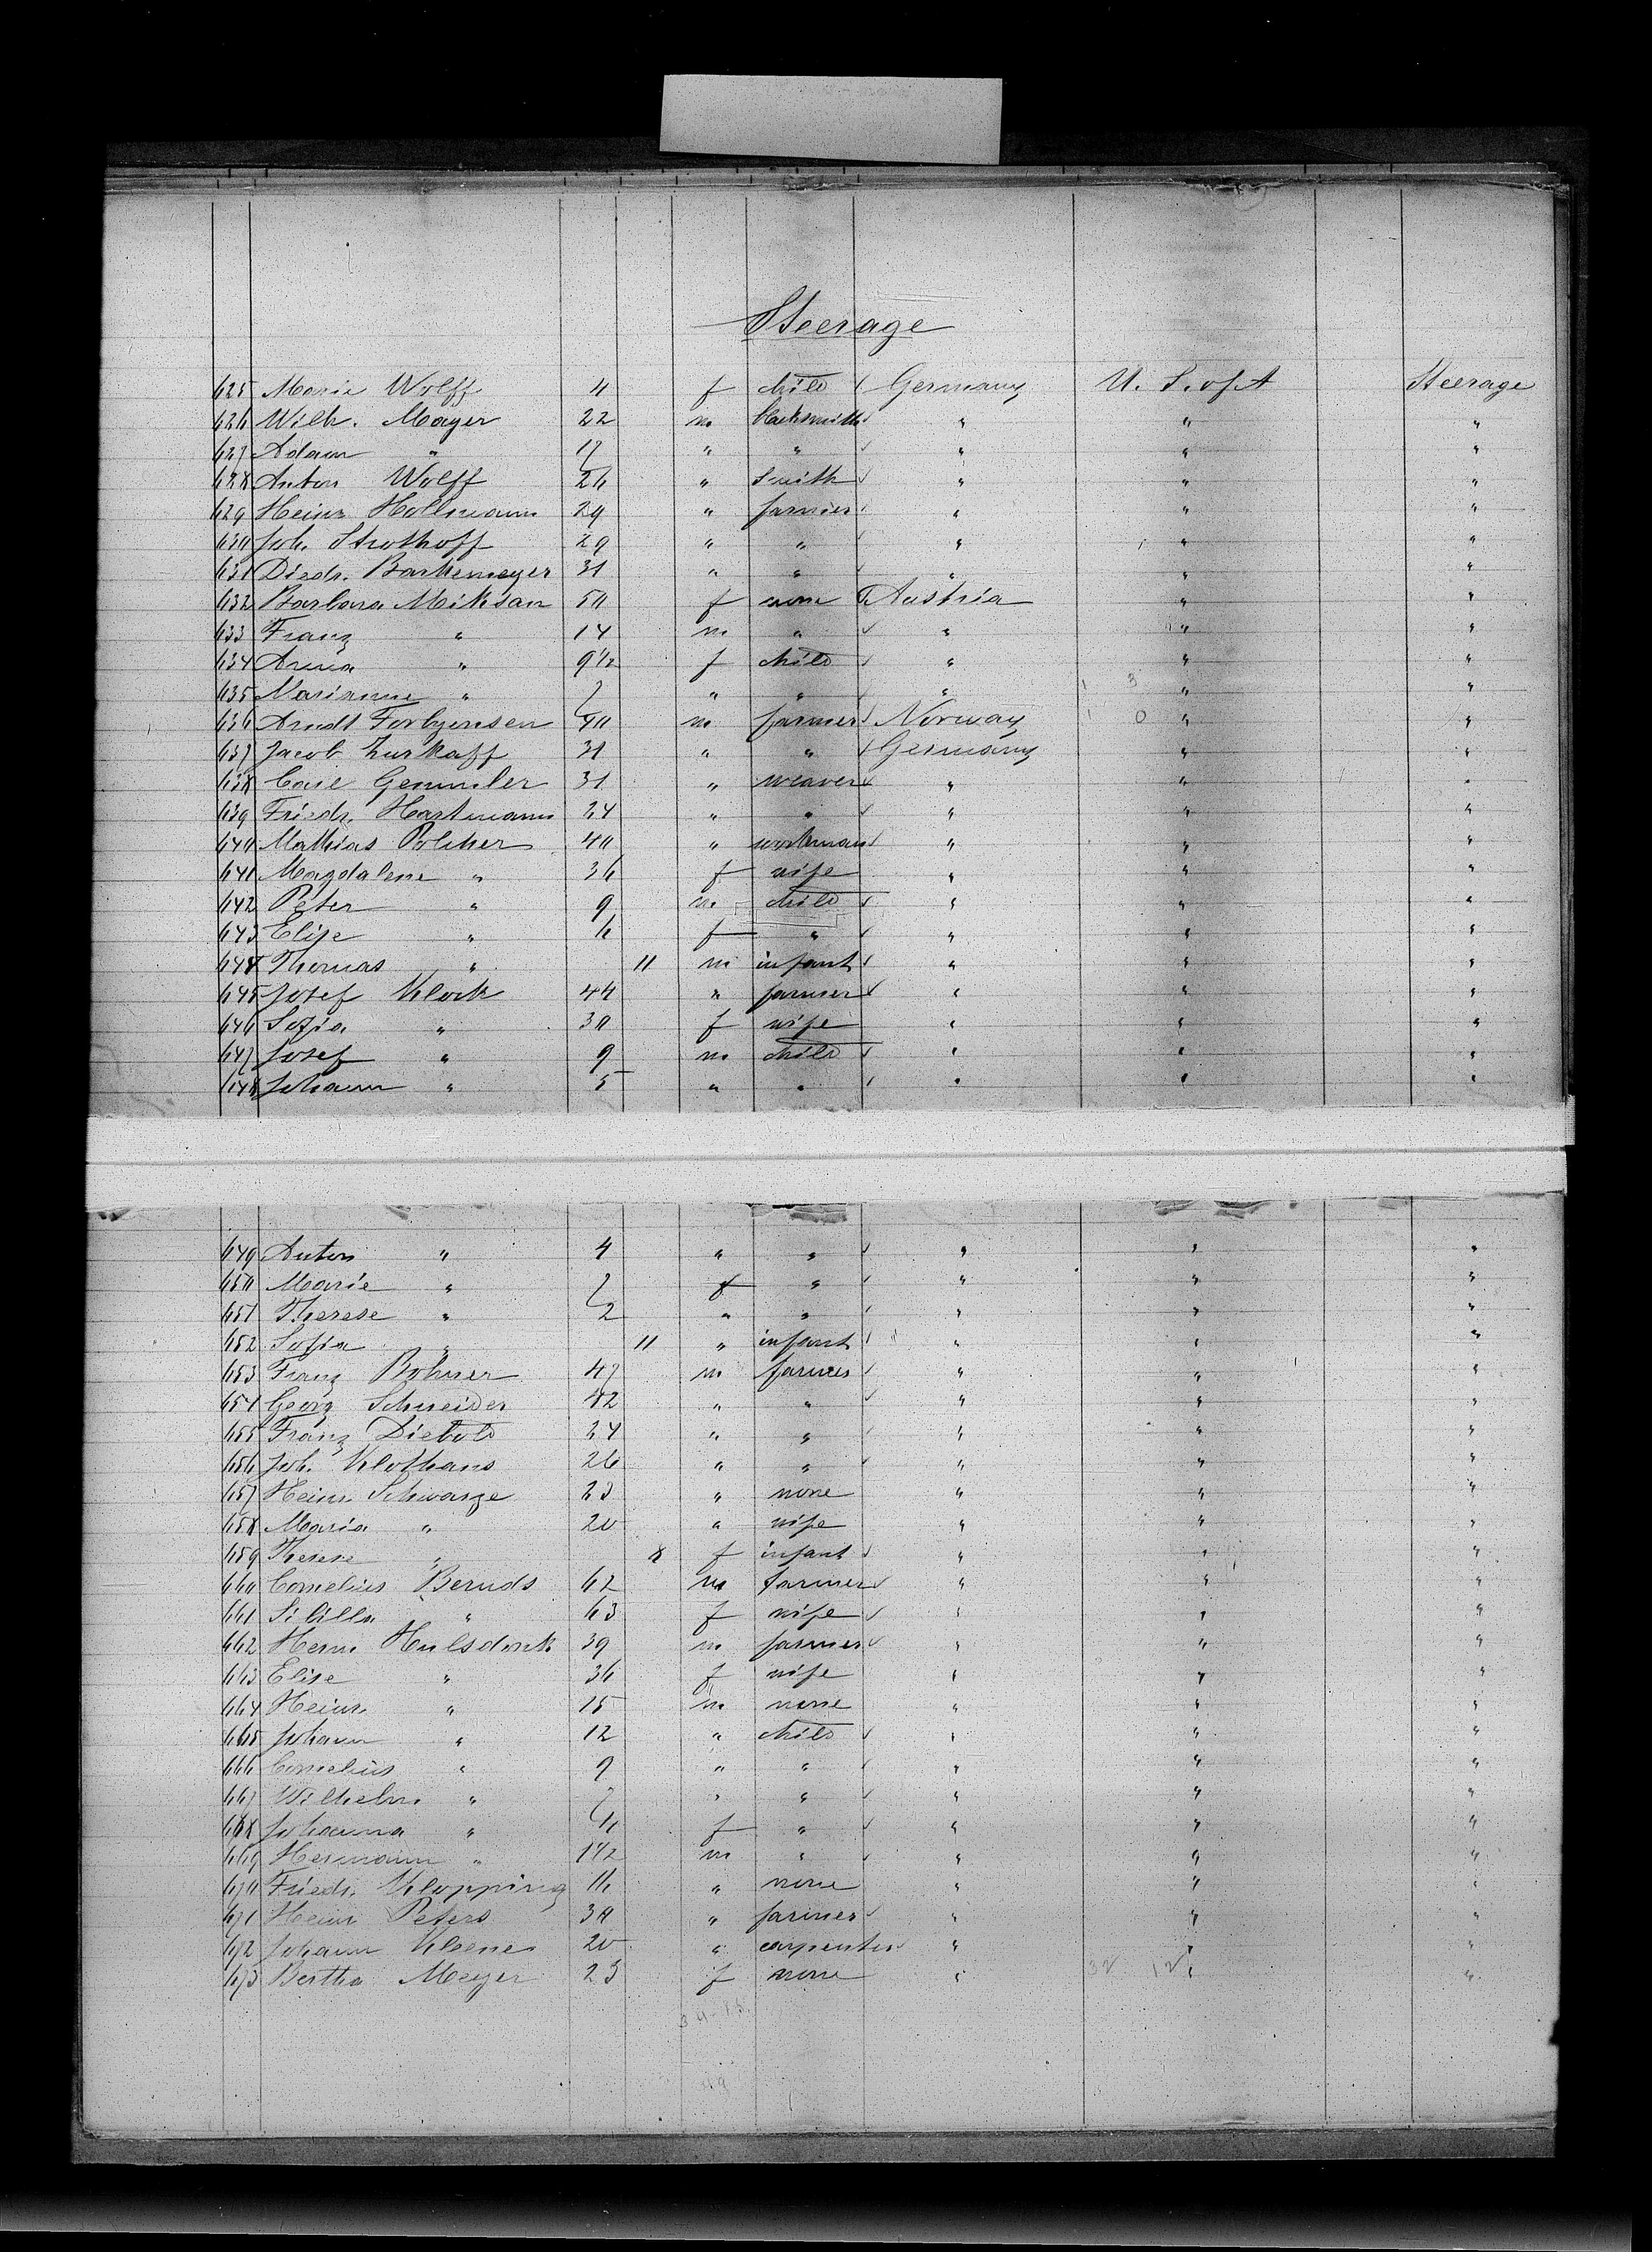 Steerage
625 Marie Wolff 4 f child Germany U. S. of A Steerage
626 Wilh. Mayer 22 m blacksmith " " "
627 Adam " 17 " " " " "
628 Anton Wolff 26 " smith " " "
629 Heinr. Hollmann 29 " farmer " " "
630 Joh. Strothoff 29 " " " " "
631 Diedr. Barkemeyer 31 " " " " "
632 Barbara Miksan 50 f none Austria " "
633 Franz " 14 m " " " "
634 Anna " 9 1/2 f child " " "
635 Marianne " 7 " " " " "
636 Arndt 40 m farmer Norway " "
637 Jacob Zurkaff 31 " " Germany " "
638 Carl Gemmler 31 " weaver " " "
639 Friedr. Hartmann 24 " " " " "
640 Mathias Polcher 40 " workman " " "
641 Magdalene " 36 f wife " " "
642 Peter " 9 m child " " "
643 Elise " 6 f " " " "
644 Thomas " 11 m infant " " "
645 Josef Klock 44 " farmer " " "
646 Sofia " 30 f wife " " "
647 Josef " 9 m child " " "
648 Johann " 5 " " " " "
649 Anton " 4 " " " " "
650 Marie " 7 f " " " "
651 Therese " 2 " " " " "
652 Sofia " 11 " infant " " "
653 Franz Bohner 47 m farmer " " "
654 Georg Schneider 42 " " " " "
655 Franz Diebold 24 " " " " "
656 Joh. Klothans 26 " " " " "
657 Heinr. Schwarze 23 " none " " "
658 Maria " 20 " wife " " "
659 Therese " 8 f infant " " "
660 Cornelius Bernds 62 m farmer " " "
661 Sibilla " 63 f wife " " "
662 Herm. Hulsdonk 39 m farmer " " "
663 Elise " 36 f wife " " "
664 Heinr. " 15 m none " " "
665 Johann " 12 " child " " "
666 Cornelius " 9 " " " " "
667 Wilhelm " 7 " " " " "
668 Johanna " 4 f " " " "
669 Hermann " 1 1/2 m " " " "
670 Friedr. Klopping 16 " none " " "
671 Heinr. Peters 30 " farmer " " "
672 Johann Klsene 20 " carpenter " " "
673 Bertha Meyer 23 f none " " "